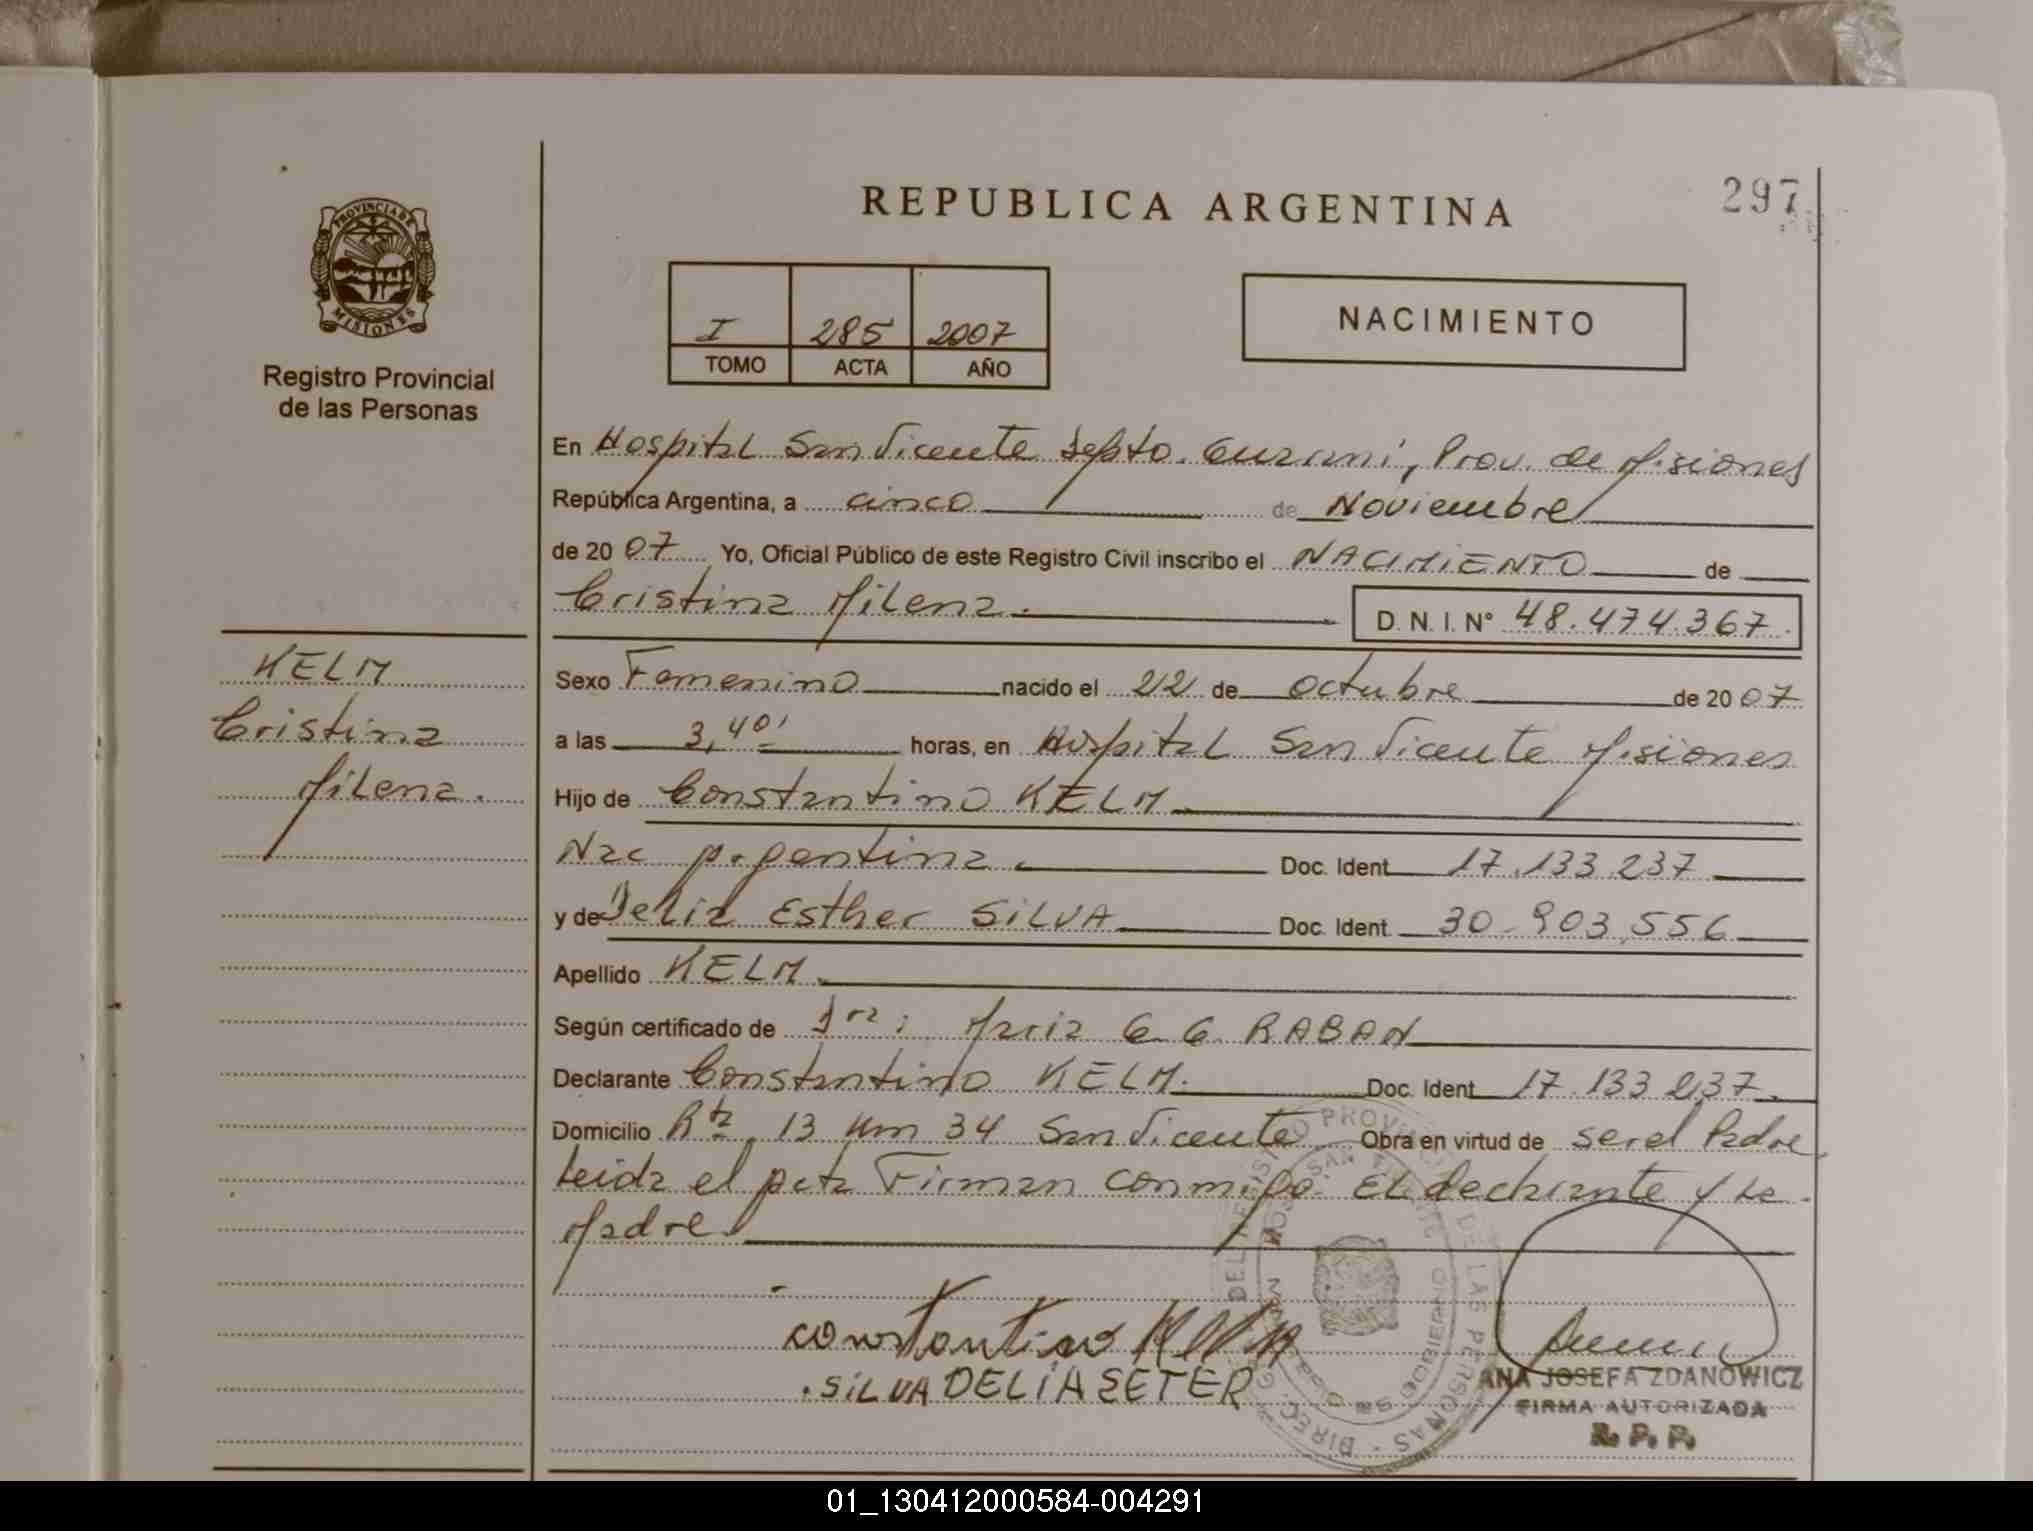 REPUBLICA ARGENTINA
297
PROVINCIA DE
MISIONES
Registro Provincial
de las Personas
I 285 2007
TOMO ACTA AÑO
NACIMIENTO
En Hospital San Vicente Depto. Guarani, Prov. de Misiones
República Argentina, a cinco de Noviembre
de 20 07 Yo, Oficial Público de este Registro Civil inscribo el NACIMIENTO de
Cristina Milena. D. N. I. Nº 48.474.367.
KELM
Cristina
Milena.
Sexo Femenino nacido el 22 de octubre de 20 07
a las 3,40' horas, en Hospital San Vicente Misiones
Hijo de Constantino KELM
Nac Argentina. Doc. Ident. 17.133.237
y de Delia Esther SILVA Doc. Ident. 30.903.556
Apellido KELM.
Según certificado de Dra: Maria G. G. RABAN
Declarante Constantino KELM. Doc. Ident. 17.133.237.
Domicilio Rta. 13 Km 34 San Vicente Obra en virtud de ser el Padre
Leida el Acta Firman conmigo: El declarante y La
Madre
constantino Kelm
SILVA DELIA SETER
ANA JOSEFA ZDANOWICZ
FIRMA AUTORIZADA
R. P. P.
01_130412000584-004291